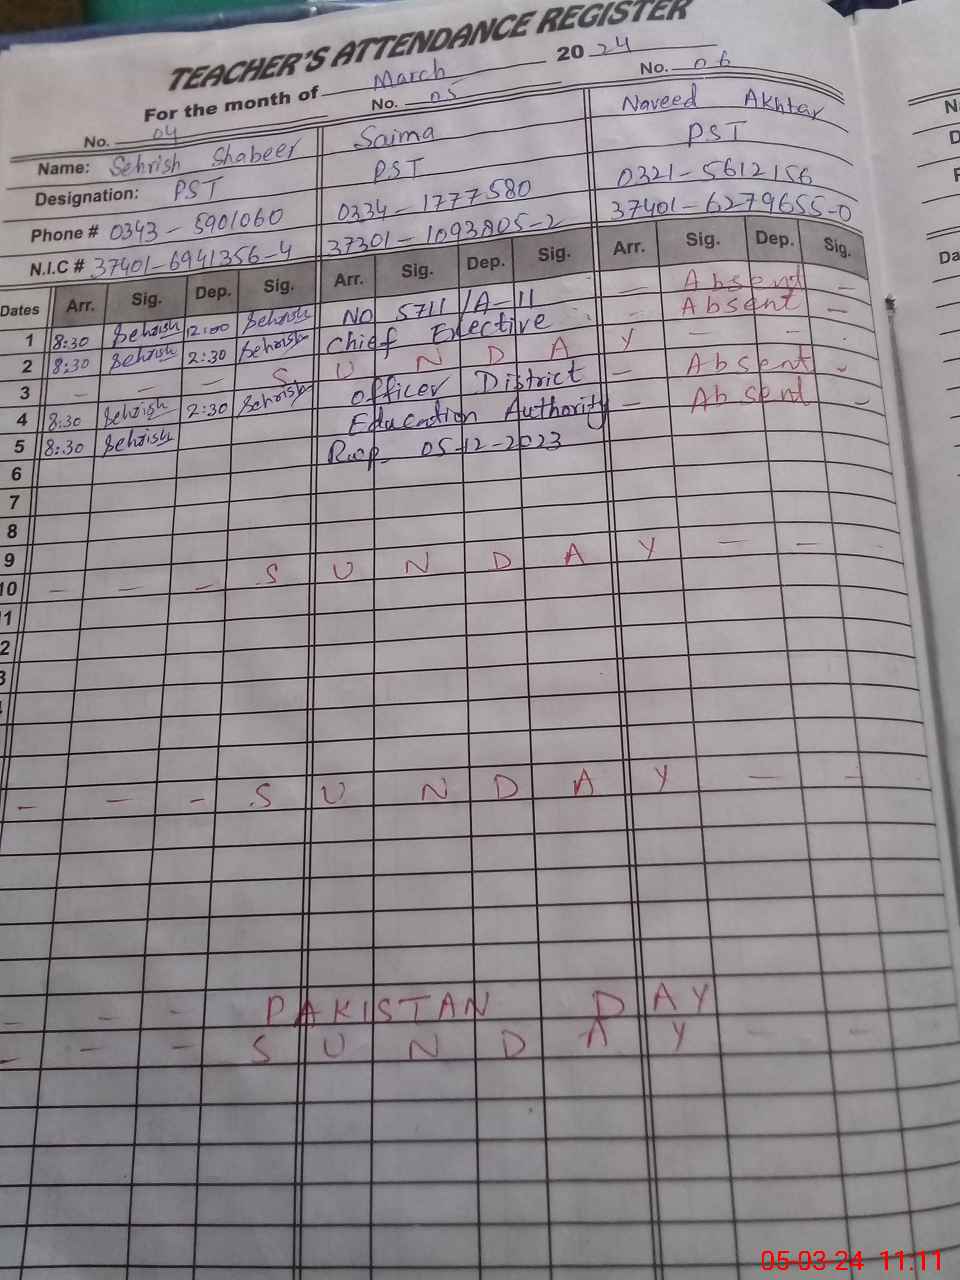 TEACHER'S ATTENDANCE REGISTER
For the month of March 2024
No. 04 No. 05 No. 06
Name: Sehrish Shabeer Saima Naveed Akhtar
Designation: PST PST PST
Phone # 0343-5901060 0334-1777580 0321-5612156
N.I.C # 37401-6941356-4 37301-1093805-2 37401-6279655-0
Dates Arr. Sig. Dep. Sig. Arr. Sig. Dep. Sig. Arr. Sig. Dep. Sig.
1 8:30 Sehrish 12:00 Sehrish No 5711/A-11 — Absend —
2 8:30 Sehrish 2:30 Sehrish Chief Exective — Absent —
3 — — — S U N D A Y — —
4 8:30 Sehrish 2:30 Sehrish officer District — Absent —
5 8:30 Sehrish Education Authority — Absend —
6 05-12-2023
7
8
9
10 — — — S U N D A Y — — —
11
2
3
— — — S U N D A Y — —
— — — PAKISTAN DAY
— — — S U N D A Y — —
05-03-24 11:11